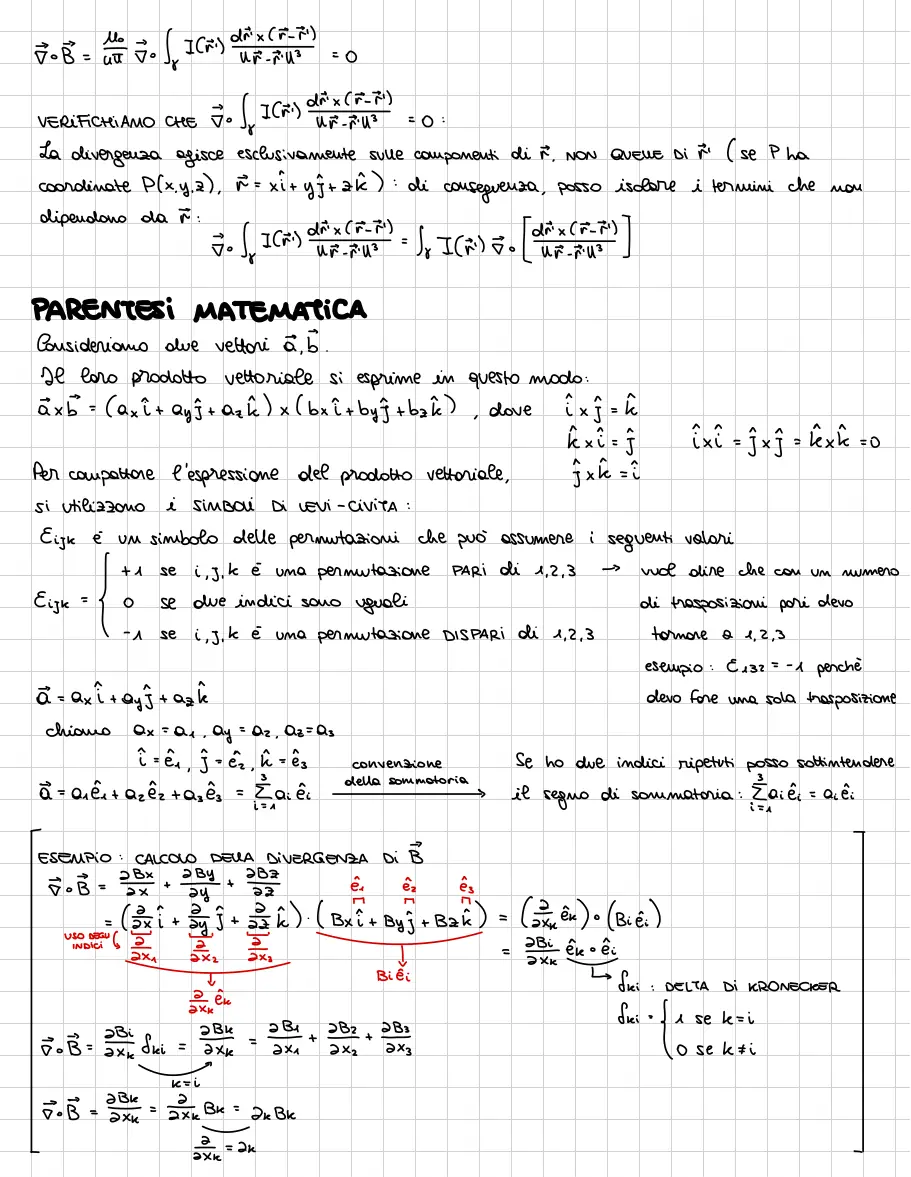 ∇⃗∘B⃗ = μ₀/4π ∇⃗∘∫_γ I(r⃗') dr⃗'×(r⃗-r⃗')/‖r⃗-r⃗'‖³ = 0
VERIFICHIAMO CHE ∇⃗∘∫_γ I(r⃗') dr⃗'×(r⃗-r⃗')/‖r⃗-r⃗'‖³ = 0 :
La divergenza agisce esclusivamente sulle componenti di r⃗, NON QUELLE DI r⃗' (se P ha
coordinate P(x,y,z), r⃗ = xî + yĵ + zk̂) : di conseguenza, posso isolare i termini che non
dipendono da r⃗ :
∇⃗∘∫_γ I(r⃗') dr⃗'×(r⃗-r⃗')/‖r⃗-r⃗'‖³ = ∫_γ I(r⃗') ∇⃗∘[dr⃗'×(r⃗-r⃗')/‖r⃗-r⃗'‖³]
PARENTESI MATEMATICA
Consideriamo due vettori a⃗,b⃗.
Il loro prodotto vettoriale si esprime in questo modo:
a⃗×b⃗ = (aₓî + a_yĵ + a_zk̂) × (bₓî + b_yĵ + b_zk̂) , dove î × ĵ = k̂
k̂ × î = ĵ î×î = ĵ×ĵ = k̂×k̂ = 0
Per compattare l'espressione del prodotto vettoriale, ĵ×k̂ = î
si utilizzano i SIMBOLI DI LEVI-CIVITA :
εᵢⱼₖ è un simbolo delle permutazioni che può assumere i seguenti valori
εᵢⱼₖ = { +1 se i,j,k è una permutazione PARI di 1,2,3 → vuol dire che con un numero
0 se due indici sono uguali di trasposizioni pari devo
-1 se i,j,k è una permutazione DISPARI di 1,2,3 tornare a 1,2,3
esempio : ε₁₃₂ = -1 perchè
a⃗ = aₓî + a_yĵ + a_zk̂ devo fare una sola trasposizione
chiamo aₓ = a₁, a_y = a₂, a_z = a₃
î = ê₁, ĵ = ê₂, k̂ = ê₃ convenzione della sommatoria Se ho due indici ripetuti posso sottintendere
a⃗ = a₁ê₁ + a₂ê₂ + a₃ê₃ = Σ_{i=1}^{3} aᵢêᵢ → il segno di sommatoria : Σ_{i=1}^{3} aᵢêᵢ = aᵢêᵢ
ESEMPIO : CALCOLO DELLA DIVERGENZA DI B⃗
∇⃗∘B⃗ = ∂Bx/∂x + ∂By/∂y + ∂Bz/∂z
ê₁ ê₂ ê₃
= (∂/∂x î + ∂/∂y ĵ + ∂/∂z k̂) · (Bxî + Byĵ + Bzk̂) = (∂/∂xₖ êₖ)∘(Bᵢêᵢ)
USO DEGLI INDICI ∂/∂x₁ ∂/∂x₂ ∂/∂x₃ = ∂Bᵢ/∂xₖ êₖ∘êᵢ
Bᵢêᵢ
∂/∂xₖ êₖ
δₖᵢ : DELTA DI KRONECKER
δₖᵢ = { 1 se k=i
0 se k≠i
∇⃗∘B⃗ = ∂Bᵢ/∂xₖ δₖᵢ = ∂Bₖ/∂xₖ = ∂B₁/∂x₁ + ∂B₂/∂x₂ + ∂B₃/∂x₃
k=i
∇⃗∘B⃗ = ∂Bₖ/∂xₖ = ∂/∂xₖ Bₖ = ∂ₖBₖ
∂/∂xₖ = ∂ₖ